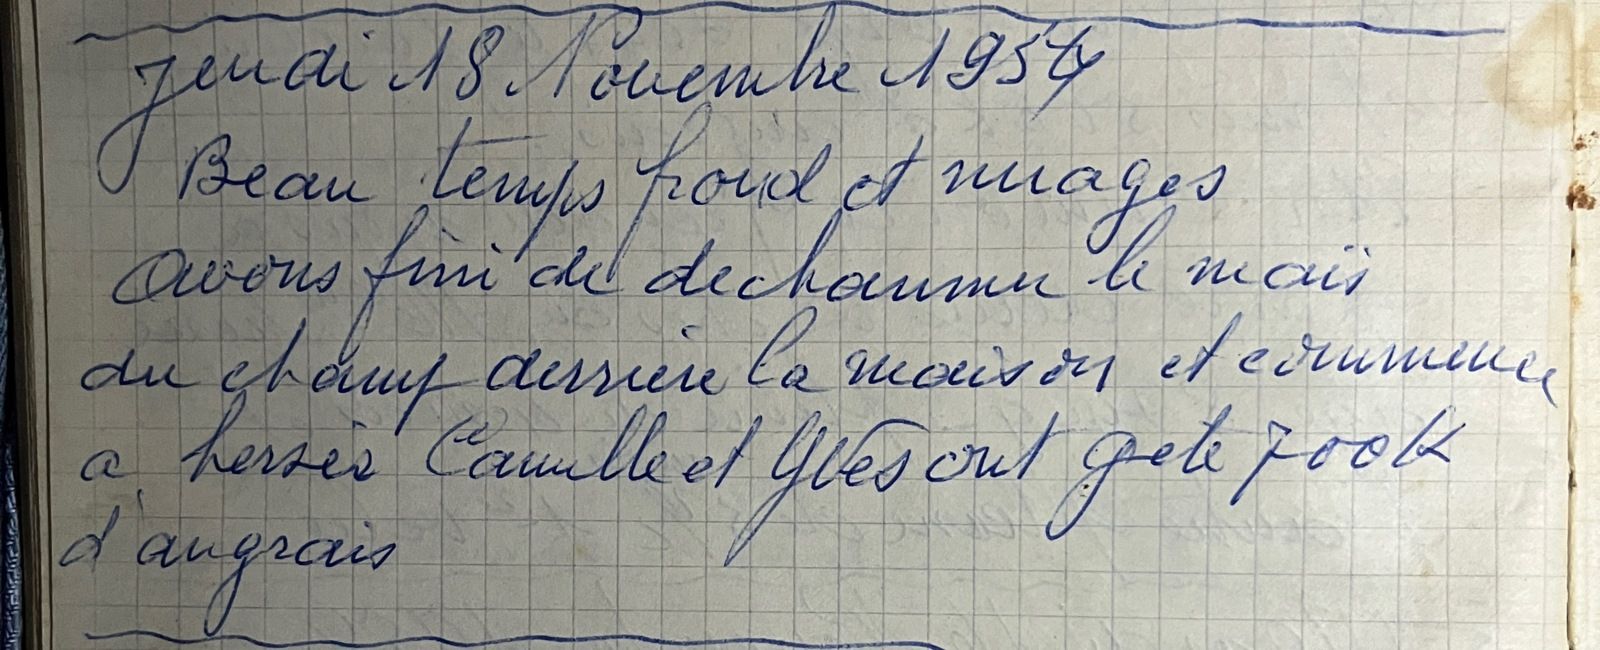 jeudi 18 Novembre 1954
Beau temps froid et nuages
Avons fini de dechaumer le maïs
du champ derrière la maison et commence
a herser Camille et Yves ont gete 700K
d'angrais